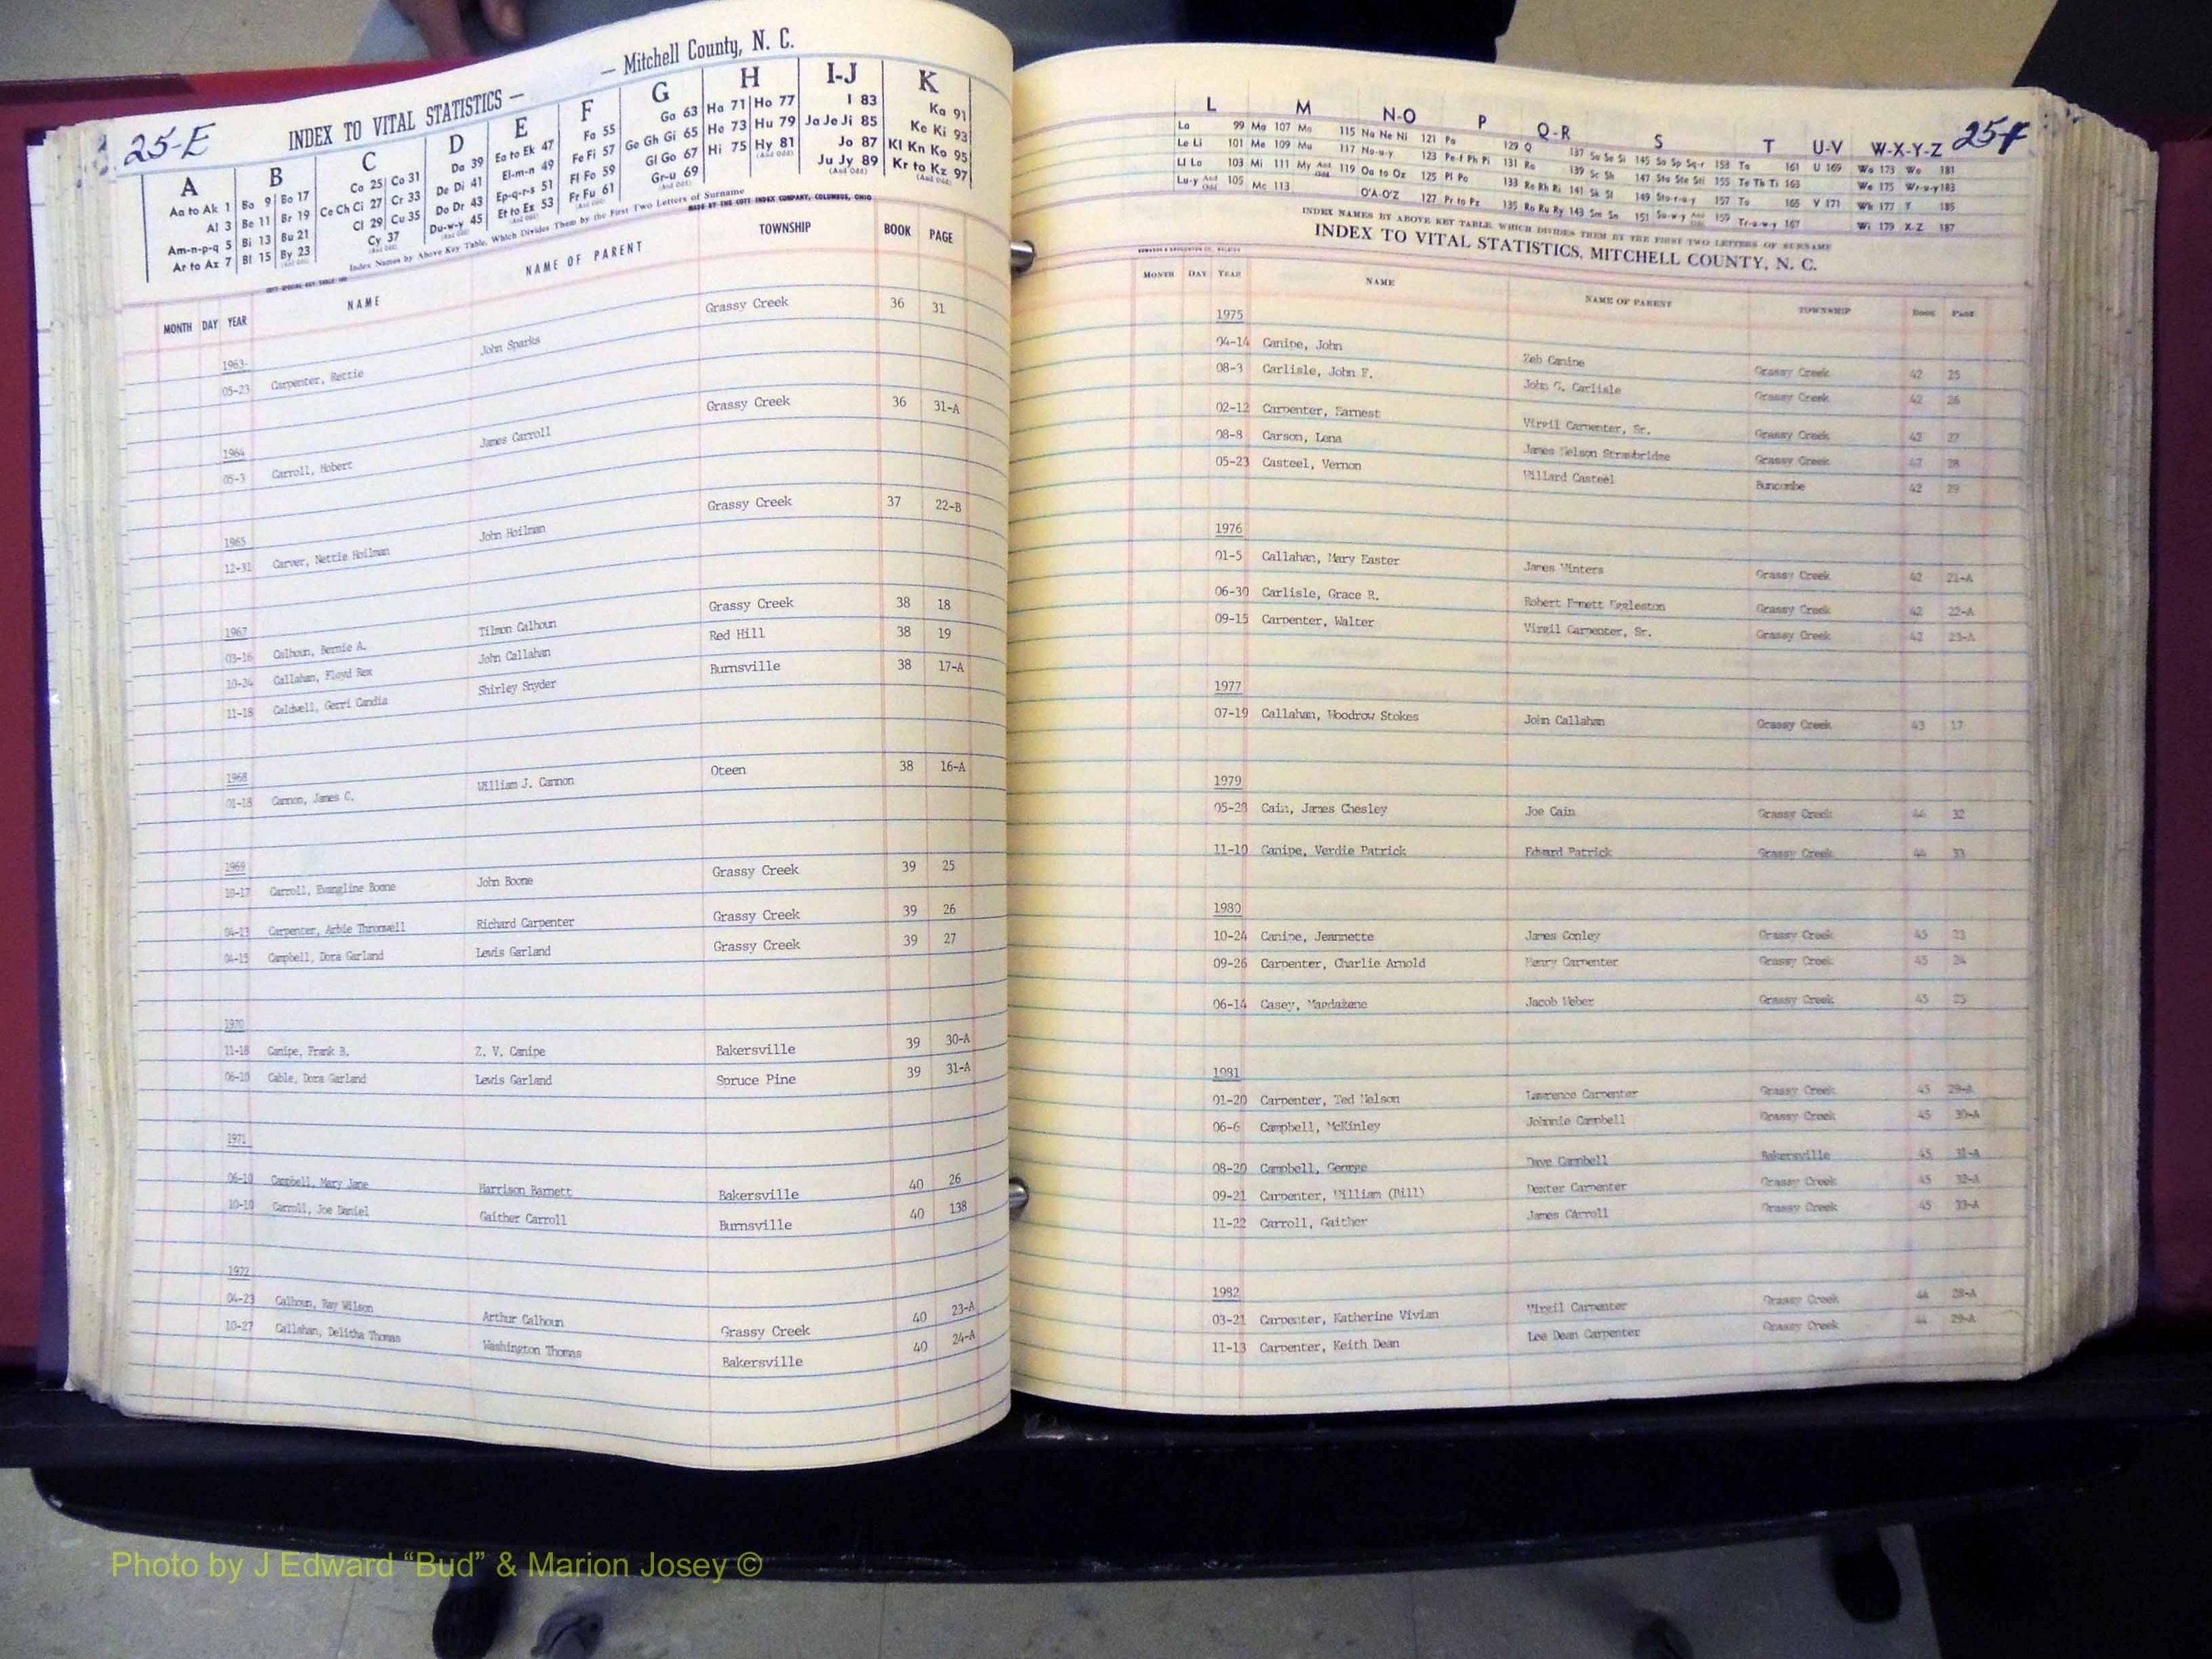 25-E
INDEX TO VITAL STATISTICS — — Mitchell County, N. C.
A B C D E F G H I-J K
Aa to Ak 1 Ba 9 Bo 17 Ca 25 Co 31 Da 39 Ea to Ek 47 Fa 55 Ga 63 Ha 71 Ho 77 I 83 Ka 91
Al 3 Be 11 Br 19 Ce Ch Ci 27 Cr 33 De Di 41 El-m-n 49 Fe Fi 57 Ge Gh Gi 65 He 73 Hu 79 Ja Je Ji 85 Ke Ki 93
Am-n-p-q 5 Bi 13 Bu 21 Cl 29 Cu 35 Do Dr 43 Ep-q-r-s 51 Fl Fo 59 Gl Go 67 Hi 75 Hy 81 (And Odd) Jo 87 Kl Kn Ko 95
Ar to Az 7 Bl 15 By 23 (And Odd) Cy 37 (And Odd) Du-w-y 45 (And Odd) Et to Ez 53 (And Odd) Fr Fu 61 (And Odd) Gr-u 69 (And Odd) Ju Jy 89 (And Odd) Kr to Kz 97 (And Odd)
Index Names by Above Key Table, Which Divides Them by the First Two Letters of Surname
MADE BY THE COTT INDEX COMPANY, COLUMBUS, OHIO
MONTH DAY YEAR NAME NAME OF PARENT TOWNSHIP BOOK PAGE
1963
05-23 Carpenter, Rettie John Sparks Grassy Creek 36 31
1964
05-3 Carroll, Robert James Carroll Grassy Creek 36 31-A
1965
12-31 Carver, Nettie Hoilman John Hoilman Grassy Creek 37 22-B
1967
03-16 Calhoun, Bernie A. Tilmon Calhoun Grassy Creek 38 18
10-24 Callahan, Floyd Rex John Callahan Red Hill 38 19
11-18 Caldwell, Gerri Candia Shirley Snyder Burnsville 38 17-A
1968
01-18 Cannon, James C. William J. Cannon Oteen 38 16-A
1969
10-17 Carroll, Evangline Boone John Boone Grassy Creek 39 25
04-13 Carpenter, Arbie Richard Carpenter Grassy Creek 39 26
04-15 Campbell, Dora Garland Lewis Garland Grassy Creek 39 27
1970
11-18 Canipe, Frank B. Z. V. Canipe Bakersville 39 30-A
06-10 Cable, Dora Garland Lewis Garland Spruce Pine 39 31-A
1971
06-10 Campbell, Mary Jane Harrison Barnett Bakersville 40 26
10-10 Carroll, Joe Daniel Gaither Carroll Burnsville 40 138
1972
04-23 Calhoun, Ray Wilson Arthur Calhoun Grassy Creek 40 23-A
10-27 Callahan, Delitha Thomas Washington Thomas Bakersville 40 24-A
25-F
L M N-O P Q-R S T U-V W-X-Y-Z
La 99 Ma 107 Mo 115 Na Ne Ni 121 Pa 129 Q 137 Sa Se Si 145 So Sp Sq-r 153 Ta 161 U 169 Wa 173 Wo 181
Le Li 101 Me 109 Mu 117 No-u-y 123 Pe-f Ph Pi 131 Ra 139 Sc Sh 147 Sta Ste Sti 155 Te Th Ti 163 We 175 Wr-u-y 183
Ll Lo 103 Mi 111 My And Odd 119 Oa to Oz 125 Pl Po 133 Re Rh Ri 141 Sk Sl 149 Sto-r-u-y 157 To 165 V 171 Wh 177 Y 185
Lu-y And Odd 105 Mc 113 O'A-O'Z 127 Pr to Pz 135 Ro Ru Ry 143 Sm Sn 151 Su-w-y And Odd 159 Tr-u-w-y 167 Wi 179 X-Z 187
INDEX NAMES BY ABOVE KEY TABLE, WHICH DIVIDES THEM BY THE FIRST TWO LETTERS OF SURNAME
INDEX TO VITAL STATISTICS, MITCHELL COUNTY, N. C.
EDWARDS & BROUGHTON CO., RALEIGH
MONTH DAY YEAR NAME NAME OF PARENT TOWNSHIP BOOK PAGE
1975
04-14 Canipe, John Zeb Canipe Grassy Creek 42 25
08-3 Carlisle, John F. John G. Carlisle Grassy Creek 42 26
02-12 Carpenter, Earnest Virgil Carpenter, Sr. Grassy Creek 42 27
08-8 Carson, Lena James Nelson Strawbridge Grassy Creek 42 28
05-23 Casteel, Vernon Willard Casteel Buncombe 42 29
1976
01-5 Callahan, Mary Easter James Winters Grassy Creek 42 21-A
06-30 Carlisle, Grace R. Robert Emmett Eggleston Grassy Creek 42 22-A
09-15 Carpenter, Walter Virgil Carpenter, Sr. Grassy Creek 42 23-A
1977
07-19 Callahan, Woodrow Stokes John Callahan Grassy Creek 43 17
1979
05-28 Cain, James Chesley Joe Cain Grassy Creek 44 32
11-10 Canipe, Verdie Patrick Edward Patrick Grassy Creek 44 33
1980
10-24 Canipe, Jeannette James Conley Grassy Creek 45 23
09-26 Carpenter, Charlie Arnold Henry Carpenter Grassy Creek 45 24
06-14 Casey, Magdalene Jacob Weber Grassy Creek 45 25
1981
01-20 Carpenter, Ted Nelson Lawrence Carpenter Grassy Creek 45 29-A
06-6 Campbell, McKinley Johnnie Campbell Grassy Creek 45 30-A
08-20 Campbell, George Dave Campbell Bakersville 45 31-A
09-21 Carpenter, William (Bill) Dexter Carpenter Grassy Creek 45 32-A
11-22 Carroll, Gaither James CArroll Grassy Creek 45 33-A
1982
03-21 Carpenter, Katherine Vivian Virgil Carpenter Grassy Creek 44 28-A
11-13 Carpenter, Keith Dean Lee Dean Carpenter Grassy Creek 44 29-A
Photo by J Edward “Bud” & Marion Josey ©